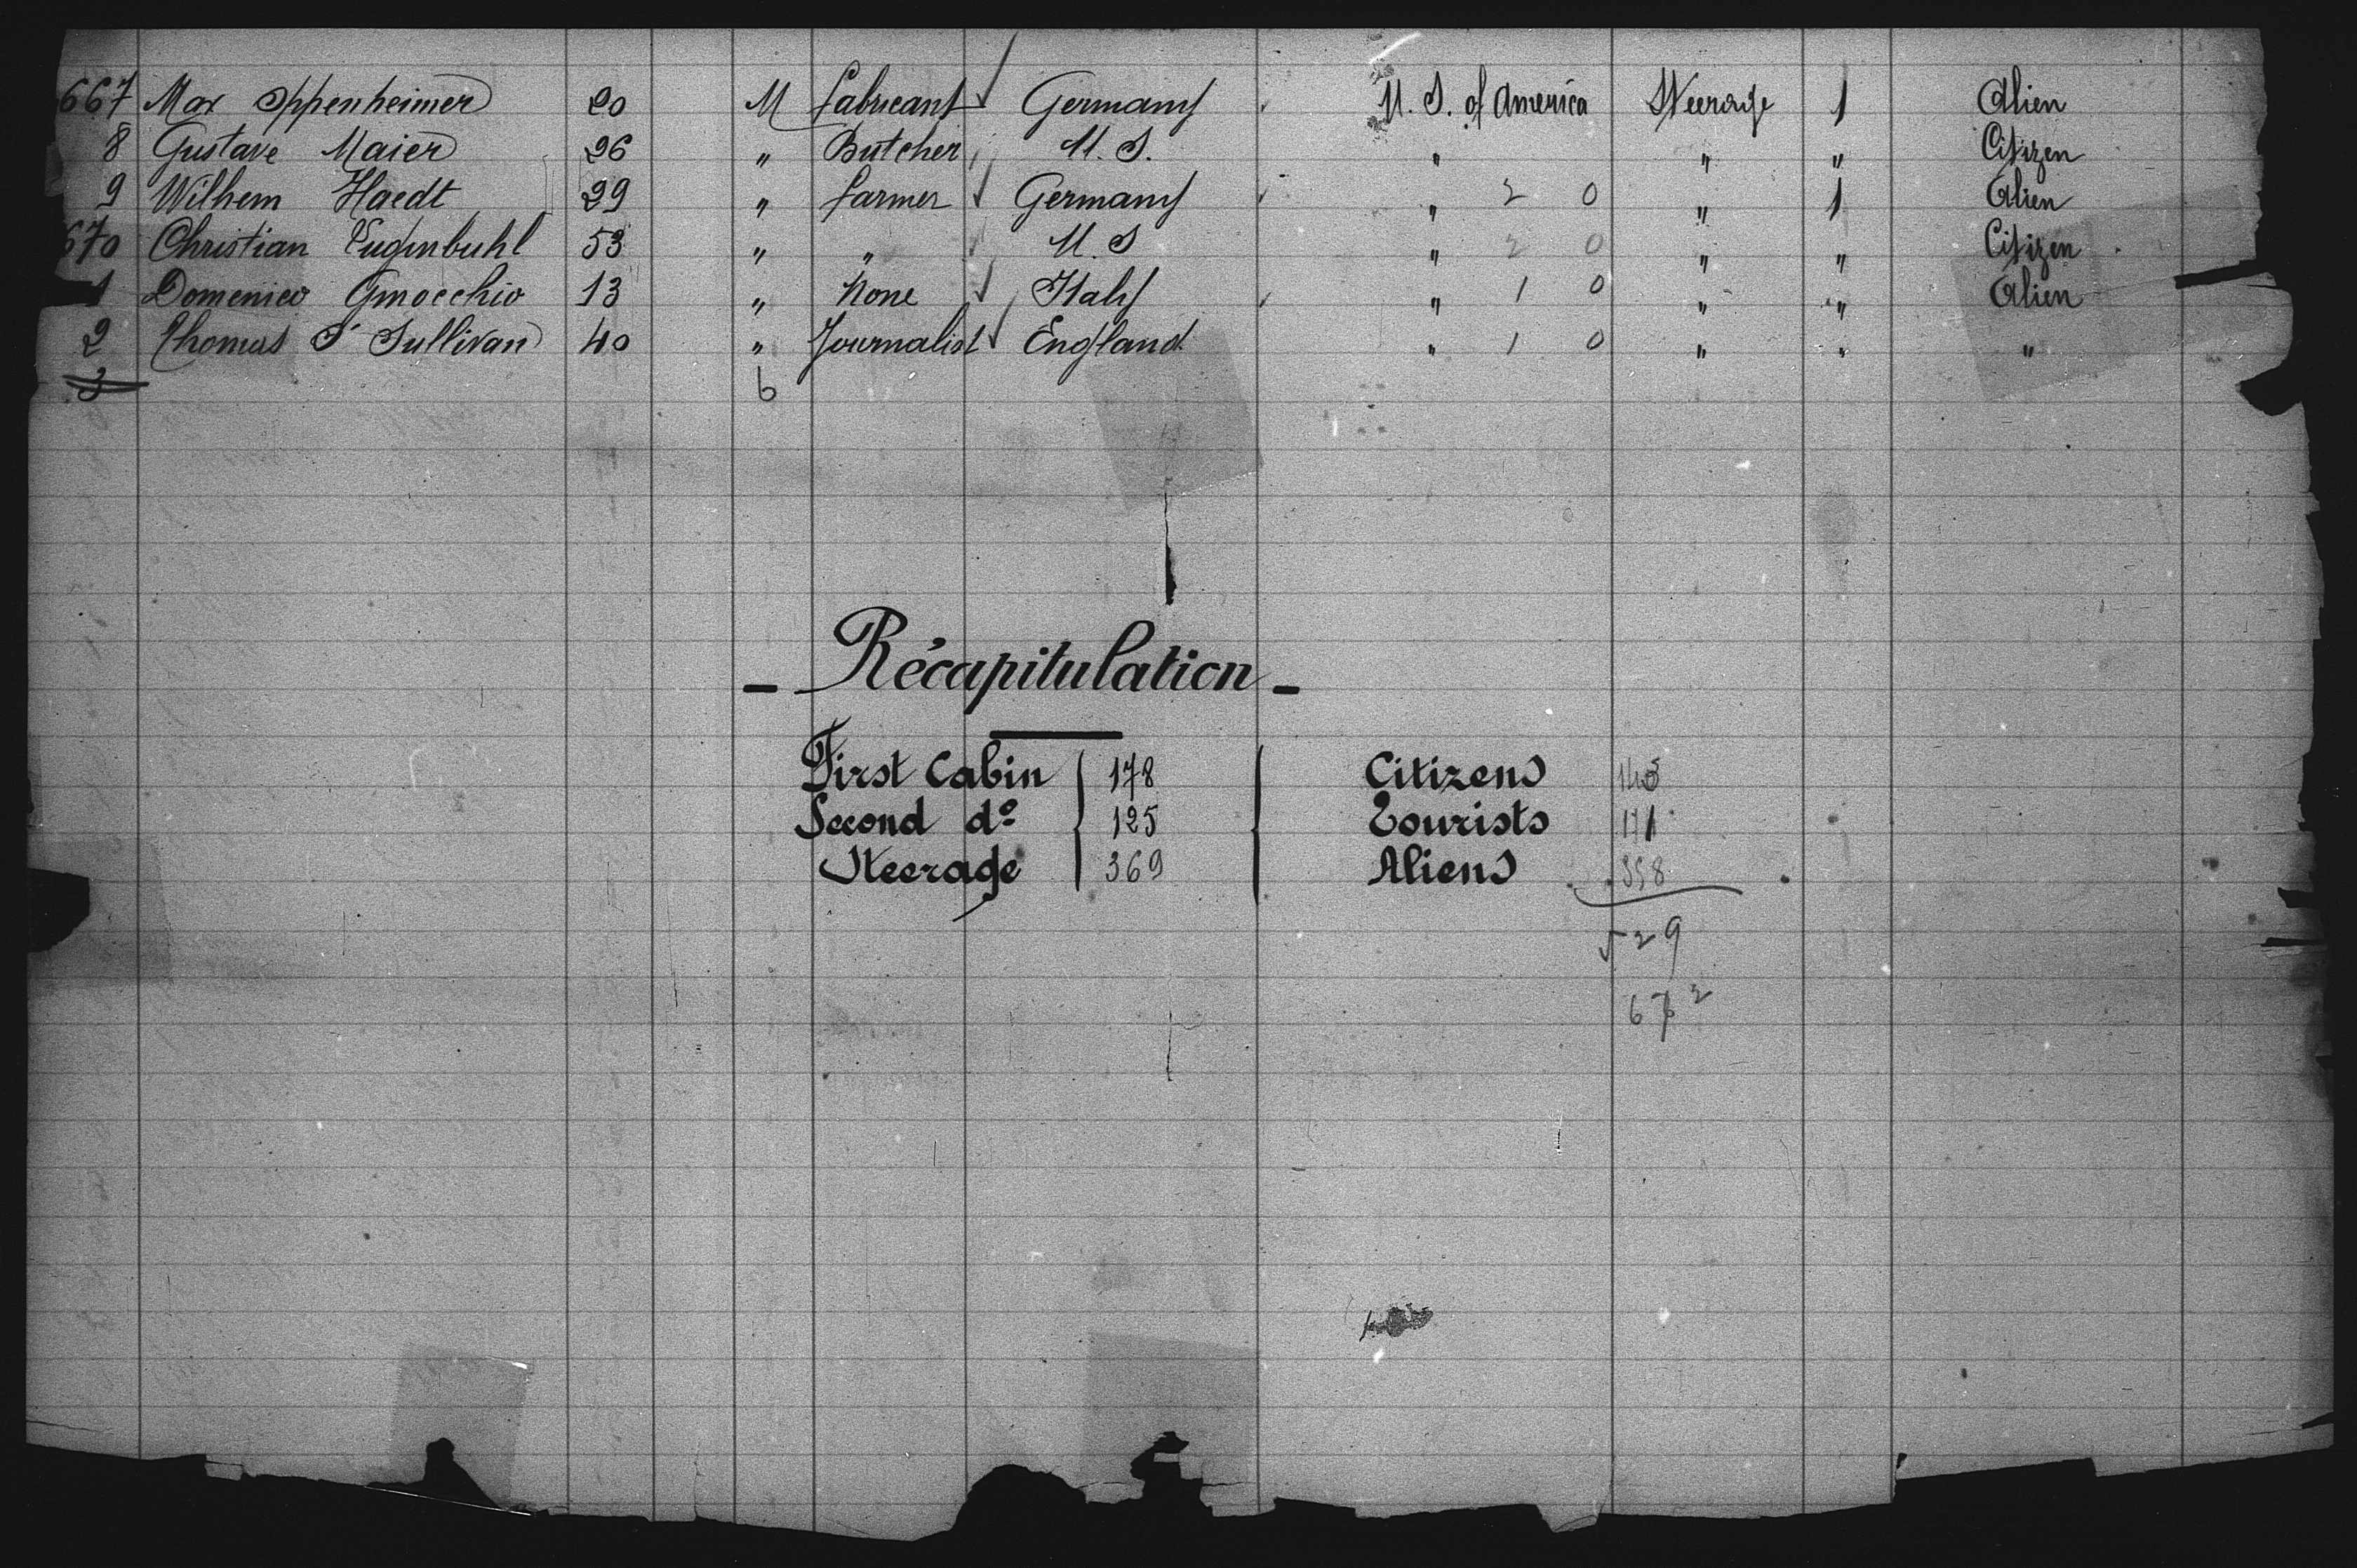 667 Max Oppenheimer 20 M fabricant Germany U. S. of America Steerage 1 Alien
8 Gustave Maier 26 " Butcher U. S. " " " Citizen
9 Wilhem Haedt 29 " farmer Germany " 2 0 " 1 Alien
670 Christian 53 " " U. S " 2 0 " " Citizen
1 Domenico Gnocchio 13 " None Italy " 1 0 " " Alien
2 Thomas S' Sullivan 40 " Journalist England " 1 0 " " "
3 6
- Récapitulation -
First Cabin 178 Citizens
Second dº 125 Tourists
Steerage 369 Aliens 358
529
672